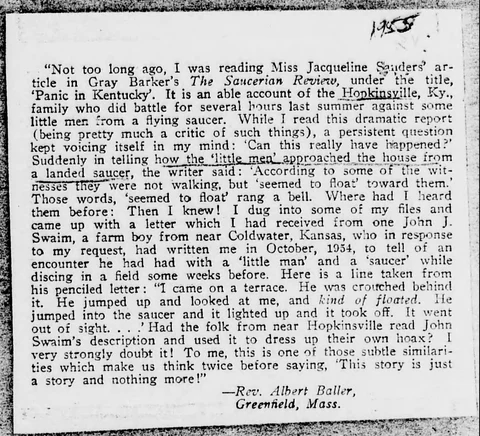 1955
"Not too long ago, I was reading Miss Jacqueline Sanders' ar-
ticle in Gray Barker's The Saucerian Review, under the title,
'Panic in Kentucky'. It is an able account of the Hopkinsville, Ky.,
family who did battle for several hours last summer against some
little men from a flying saucer. While I read this dramatic report
(being pretty much a critic of such things), a persistent question
kept voicing itself in my mind: 'Can this really have happened?'
Suddenly in telling how the 'little men' approached the house from
a landed saucer, the writer said: 'According to some of the wit-
nesses they were not walking, but 'seemed to float' toward them.'
Those words, 'seemed to float' rang a bell. Where had I heard
them before: Then I knew! I dug into some of my files and
came up with a letter which I had received from one John J.
Swaim, a farm boy from near Coldwater, Kansas, who in response
to my request, had written me in October, 1954, to tell of an
encounter he had had with a 'little man' and a 'saucer' while
discing in a field some weeks before. Here is a line taken from
his penciled letter: "I came on a terrace. He was crouched behind
it. He jumped up and looked at me, and kind of floated. He
jumped into the saucer and it lighted up and it took off. It went
out of sight. . . .' Had the folk from near Hopkinsville read John
Swaim's description and used it to dress up their own hoax? I
very strongly doubt it! To me, this is one of those subtle similari-
ties which make us think twice before saying, 'This story is just
a story and nothing more!"
—Rev. Albert Baller,
Greenfield, Mass.